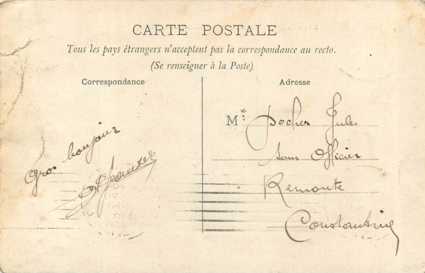 CARTE POSTALE
Tous les pays étrangers n'acceptent pas la correspondance au recto.
(Se renseigner à la Poste)
Correspondance
Adresse
Gros bonjour
M. Jules
Sous Officier
Remonte
Constantine